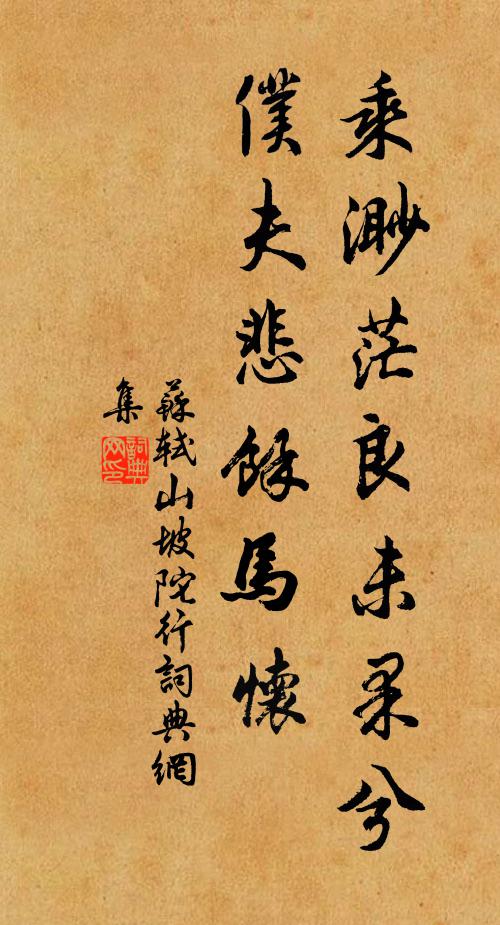 乘渺茫良未果兮
僕夫悲餘馬懷
蘇軾山坡陀行詞典網
集
詞典
网印